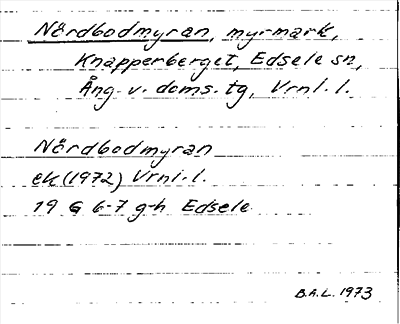 Nördbodmyran, myrmark,
Knapperberget, Edsele sn,
Ång. v. doms. tg, Vrnl. l.
Nördbodmyran
ek (1972) Vrnl. l.
19 G 6-7 g-h Edsele
B.A.L. 1973